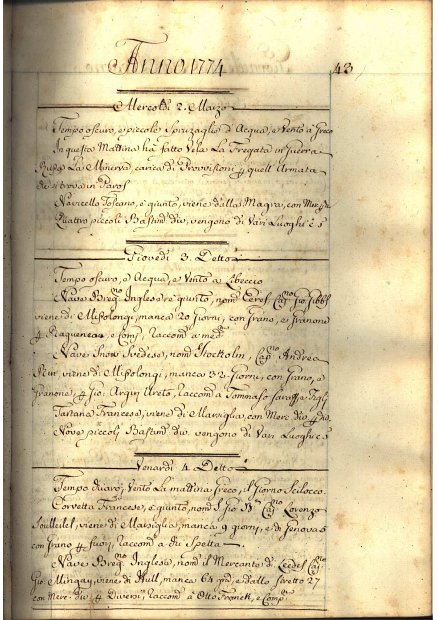 Anno 1774
43
Mercoldi 2. Marzo
Tempo oscuro, e piccolo Spruzaglio d'Acqua, e Vento à Greco
In questa Mattina ha fatto Vela La Fregata in Guerra
Russa La Minerva, carica di Provvisioni p quell'Armata
che si trova in Paros
Navicello Toscano, è giunto, viene dalla Magra, con
Quattro piccoli Bastim. div. vengono di Vari Luoghi
Giovedì 3. Detto
Tempo oscuro, e Acqua, e Vento a Libeccio
Nave Inglese è giunto, nom. Ceres Cap.no Gio.
viene di Missolongi, manca 20 Giorni, con Grano, e Granone
e Comp. Raccom. a med.
Nave Snow Svedese, nom. Stockolm, Cap.no Andrea
viene di Missolongi, manca 32 Giorni, con Grano, e
Granone, p Gio: Raccom. a Tommaso
Tartana Francese, viene di Marsiglia, con Merc. div. p div.
Nove piccoli Bastim. div. vengono di Vari Luoghi
Venardi 4. Detto
Tempo Vento La mattina Greco, il Giorno Scilocco
Corvetta Francese, è giunto, nom. S. Gio. Cap.no Lorenzo
viene di Marsiglia, manca 9 giorni, e di Genova 5
con Grano p fuori, Raccom. a
Nave Inglesa, nom. il Mercante di Leedes Cap.
Gio: Mingay, viene di Hull, manca 64 e dallo Stretto 27
con Merc. div. p Diversi, Raccom. à Otto Franck, e Comp.